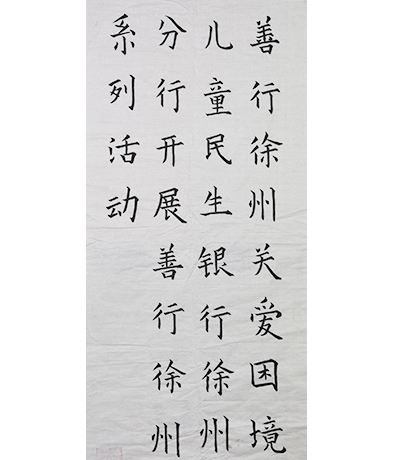 善行徐州关爱困境
儿童民生银行徐州
分行开展善行徐州
系列活动